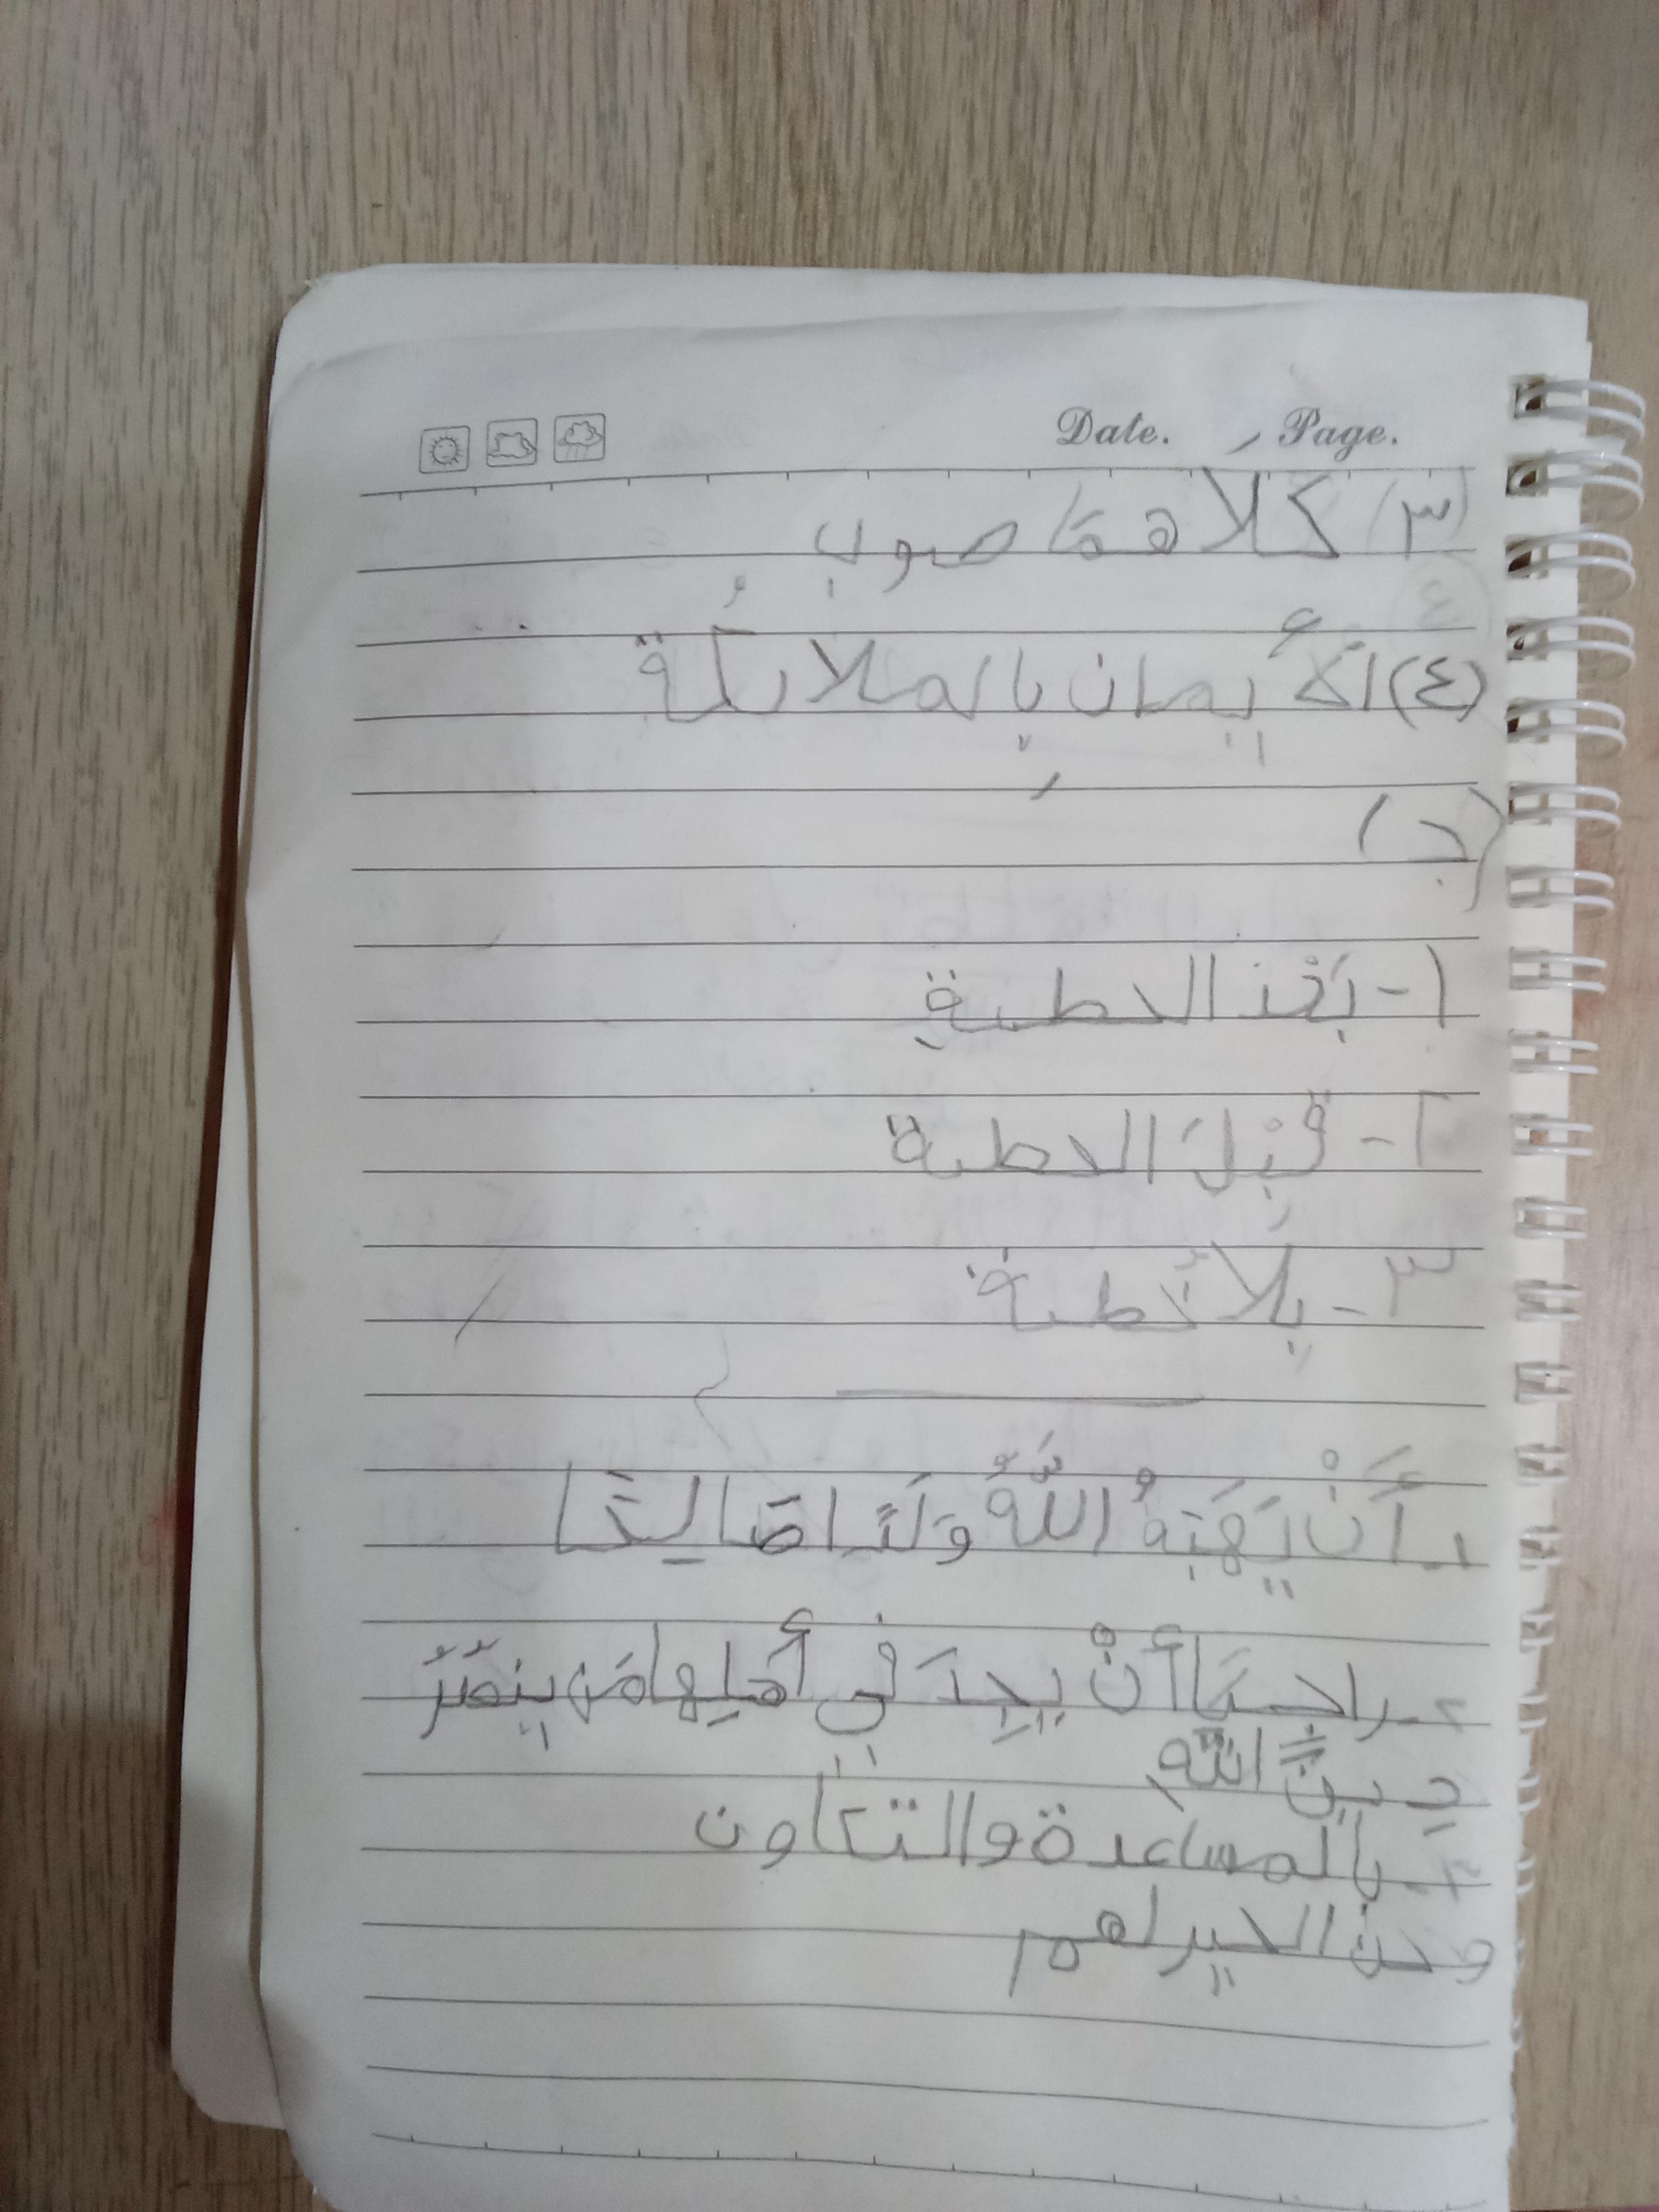 Date. Page.
(٣) كلاهمَا صوب
(٤) الأَ يمان بِالملائكُة
(ج)
١- بَعْد الحطبةِ
٢- قَبْلَ الحطبة
٣- بِلا خُطبة
١- أَنْ يَهَبَهُ اللَّهُ وَلَدًا صَالِحًا
٢- راحيًا أنْ يَجِدَ فِي أَهلِها مَن ينصُرُ
دِينَ اللهِ
٣- بالمساعدة والتعاون
وحن الحير لهم